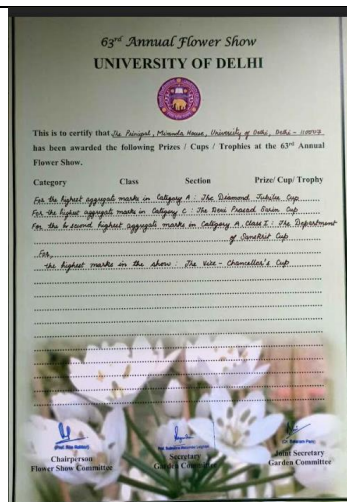 63rd Annual Flower Show
UNIVERSITY OF DELHI
This is to certify that The Principal, Miranda House, University of Delhi, Delhi - 110007
has been awarded the following Prizes / Cups / Trophies at the 63rd Annual
Flower Show.
Category Class Section Prize/ Cup/ Trophy
For the highest aggregate marks in Category A : The Diamond Jubilee Cup
For the highest aggregate marks in Category : The Devi Prasad Sarin Cup
For the second highest aggregate marks in Category A, Class I : The Department
of Sanskrit Cup
For
the highest marks in the show : The Vice - Chancellor's Cup
Chairperson
Flower Show Committee
Secretary
Garden Committee
Joint Secretary
Garden Committee